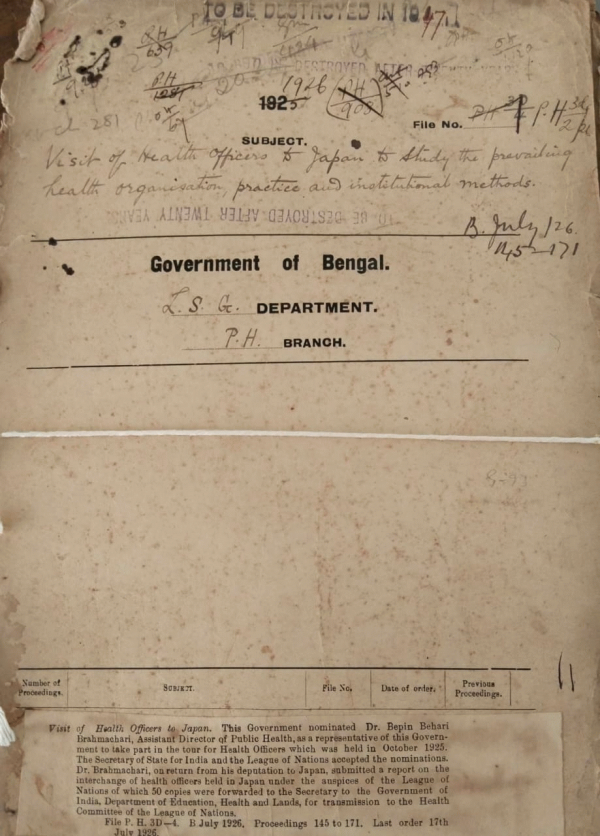 TO BE DESTROYED IN 1947
PH
659
1926
1925
File No. P.H
SUBJECT.
Visit of Health Officers to Japan to study the prevailing
health organisation, practice and institutional methods.
TO BE DESTROYED AFTER TWENTY YEARS
B. July /26
145-171
Government of Bengal.
L. S. G. DEPARTMENT.
P.H. BRANCH.
Number of Proceedings. SUBJECT. File No. Date of order. Previous Proceedings.
Visit of Health Officers to Japan. This Government nominated Dr. Bepin Behari
Brahmachari, Assistant Director of Public Health, as a representative of this Govern-
ment to take part in the tour for Health Officers which was held in October 1925.
The Secretary of State for India and the League of Nations accepted the nominations.
Dr. Brahmachari, on return from his deputation to Japan, submitted a report on the
interchange of health officers held in Japan under the auspices of the League of
Nations of which 50 copies were forwarded to the Secretary to the Government of
India, Department of Education, Health and Lands, for transmission to the Health
Committee of the League of Nations.
File P. H. 3D—4. B July 1926, Proceedings 145 to 171. Last order 17th
July 1926.